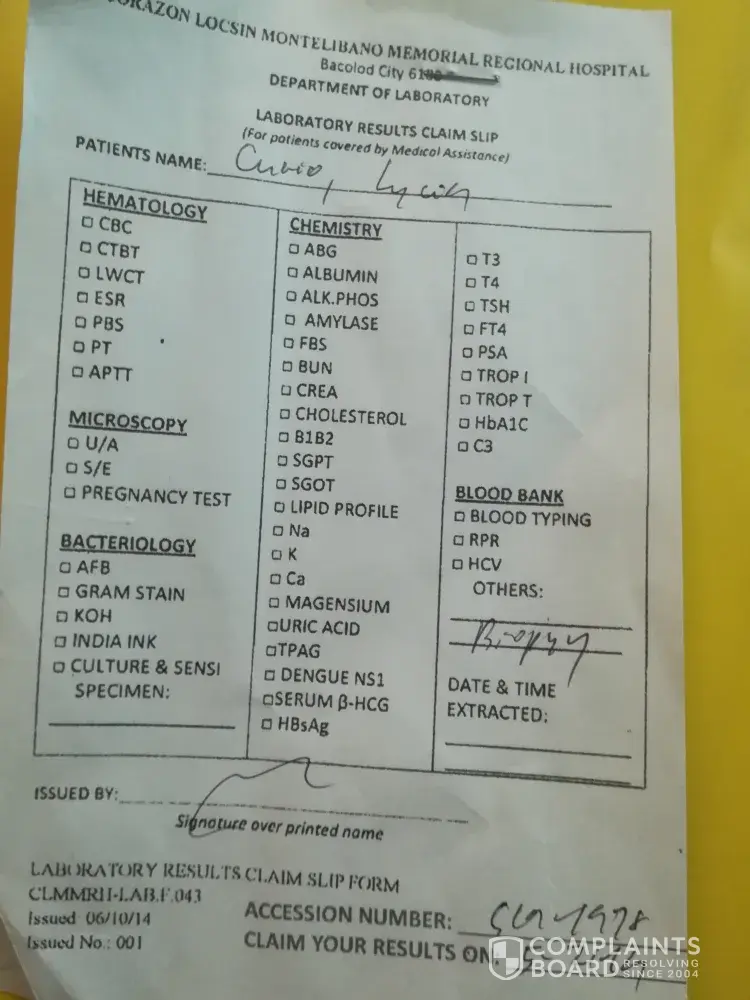 CORAZON LOCSIN MONTELIBANO MEMORIAL REGIONAL HOSPITAL
Bacolod City
DEPARTMENT OF LABORATORY
LABORATORY RESULTS CLAIM SLIP
(For patients covered by Medical Assistance)
PATIENTS NAME:
HEMATOLOGY
CBC
CTBT
LWCT
ESR
PBS
PT
APTT
MICROSCOPY
U/A
S/E
PREGNANCY TEST
BACTERIOLOGY
AFB
GRAM STAIN
KOH
INDIA INK
CULTURE & SENSI
SPECIMEN:
CHEMISTRY
ABG
ALBUMIN
ALK.PHOS
AMYLASE
FBS
BUN
CREA
CHOLESTEROL
B1B2
SGPT
SGOT
LIPID PROFILE
Na
K
Ca
MAGENSIUM
URIC ACID
TPAG
DENGUE NS1
SERUM β-HCG
HBsAg
T3
T4
TSH
FT4
PSA
TROP I
TROP T
HbA1C
C3
BLOOD BANK
BLOOD TYPING
RPR
HCV
OTHERS:
Biopsy
DATE & TIME
EXTRACTED:
ISSUED BY:
Signature over printed name
LABORATORY RESULTS CLAIM SLIP FORM
CLMMRH-LAB.F.043
Issued 06/10/14
Issued No.: 001
ACCESSION NUMBER:
CLAIM YOUR RESULTS ON:
COMPLAINTS
BOARD RESOLVING
SINCE 2004